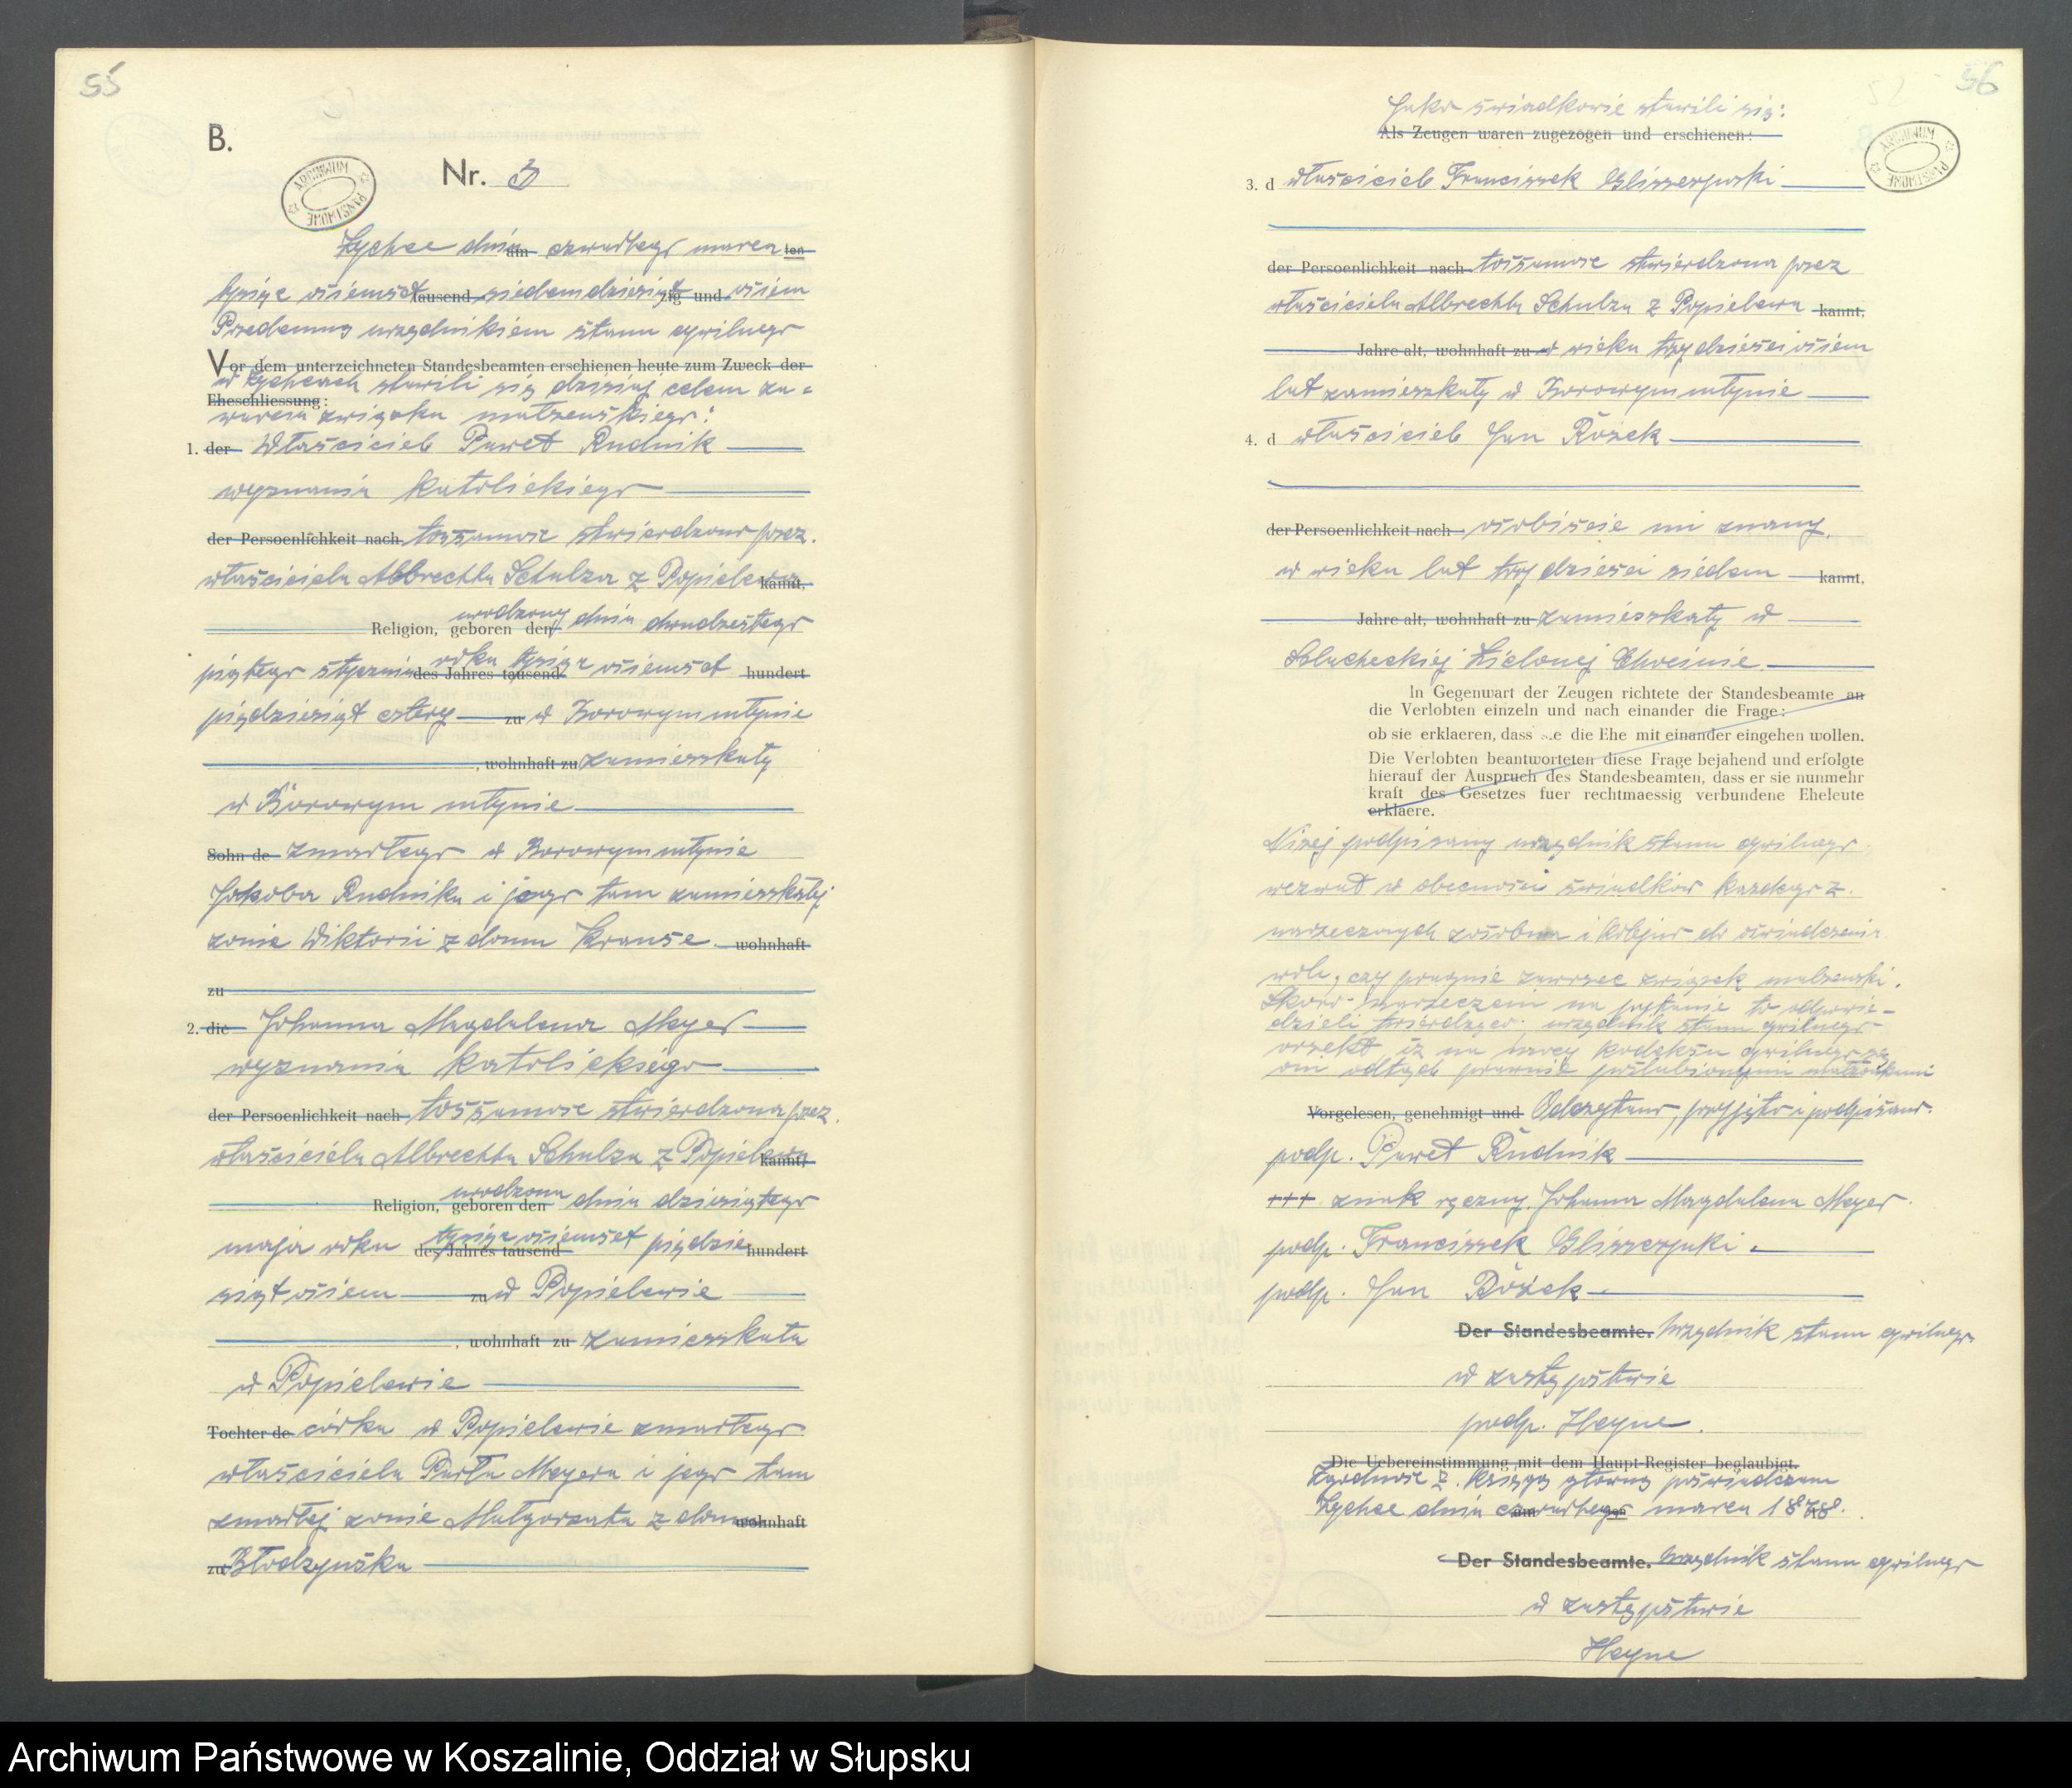 55
B.
ARCHIWUM PAŃSTWOWE
Nr. 3
Łychce dnia am czwartego marca ten
tysiąc osiemset tausend siedemdziesiąt zig und osiem
Przedemną urzędnikiem stanu cywilnego
Vor dem unterzeichneten Standesbeamten erschienen heute zum Zweck der
w Łychcach stawili się dzisiaj celem za=
Eheschliessung:
warcia związku małżeńskiego:
1. der Właściciel Paweł Rudnik
wyznania katolickiego
der Persoenlichkeit nach tożsamość stwierdzona przez
właściciela Albrechta Schulza z Popielewa kannt,
urodzony
Religion, geboren den dnia dwudziestego
piątego stycznia des Jahres tausend roku tysiąc osiemset hundert
pięćdziesiąt cztery zu w Borowym młynie
, wohnhaft zu zamieszkały
w Borowym młynie
Sohn de zmarłego w Borowym młynie
Jakóba Rudnika i jego tam zamieszkałej
żonie Wiktorii z domu Krause. wohnhaft
zu
2. die Johanna Magdalena Meyer
wyznania katolickiego
der Persoenlichkeit nach tożsamość stwierdzona przez
właściciela Albrechta Schulza z Popielewa kannt,
urodzona
Religion, geboren den dnia dziesiątego
maja roku des Jahres tausend tysiąc osiemset pięćdzie hundert
siąt osiem zu w Popielewie
, wohnhaft zu zamieszkała
w Popielewie
Tochter de córka w Popielewie zmarłego
właściciela Meyera i jego tam
zmarłej żonie Małgorzata z domu wohnhaft
zu
56
52
Jako świadkowie stawili się:
Als Zeugen waren zugezogen und erschienen:
ARCHIWUM PAŃSTWOWE
3. d właściciel Franciszek Gliszczyński
der Persoenlichkeit nach tożsamość stwierdzona przez
właściciela Albrechta Schulza z Popielewa kannt,
Jahre alt, wohnhaft zu w wieku trzydzieści osiem
lat zamieszkały w Borowym młynie
4. d właściciel Jan Różek
der Persoenlichkeit nach osobiście mi znany
w wieku lat trzydzieści siedem kannt,
Jahre alt, wohnhaft zu zamieszkały w
Szlacheckiej Zielonej Chocinie.
In Gegenwart der Zeugen richtete der Standesbeamte an
die Verlobten einzeln und nach einander die Frage:
ob sie erklaeren, dass sie die Ehe mit einander eingehen wollen.
Die Verlobten beantworteten diese Frage bejahend und erfolgte
hierauf der Auspruch des Standesbeamten, dass er sie nunmehr
kraft des Gesetzes fuer rechtmaessig verbundene Eheleute
erklaere.
Niżej podpisany urzędnik stanu cywilnego
wezwał w obecności świadków każdego z
narzeczonych zosobna i kolejno do oświadczenia
woli, czy pragnie zawrzeć związek małżeński.
Skoro narzeczeni na pytanie to odpowie-
dzieli twierdząco urzędnik stanu cywilnego
orzekł, iż na mocy kodeksu cywilnego są
oni odtąd prawnie poślubionymi małżonkami
Vorgelesen, genehmigt und Odczytano, przyjęto i podpisano.
podp. Paweł Rudnik
+++ znak ręczny, Johanna Magdalena Meyer.
podp. Franciszek Gliszczyński.
podp. Jan Różek
Der Standesbeamte. Urzędnik stanu cywilnego
w zastępstwie
podp. Heyne.
Die Uebereinstimmung mit dem Haupt-Register beglaubigt.
Zgodność z księgą główną poświadczam
Łychce dnia am czwartego ten marca 1878.
Der Standesbeamte. Urzędnik stanu cywilnego
w zastępstwie
Heyne
Archiwum Państwowe w Koszalinie, Oddział w Słupsku